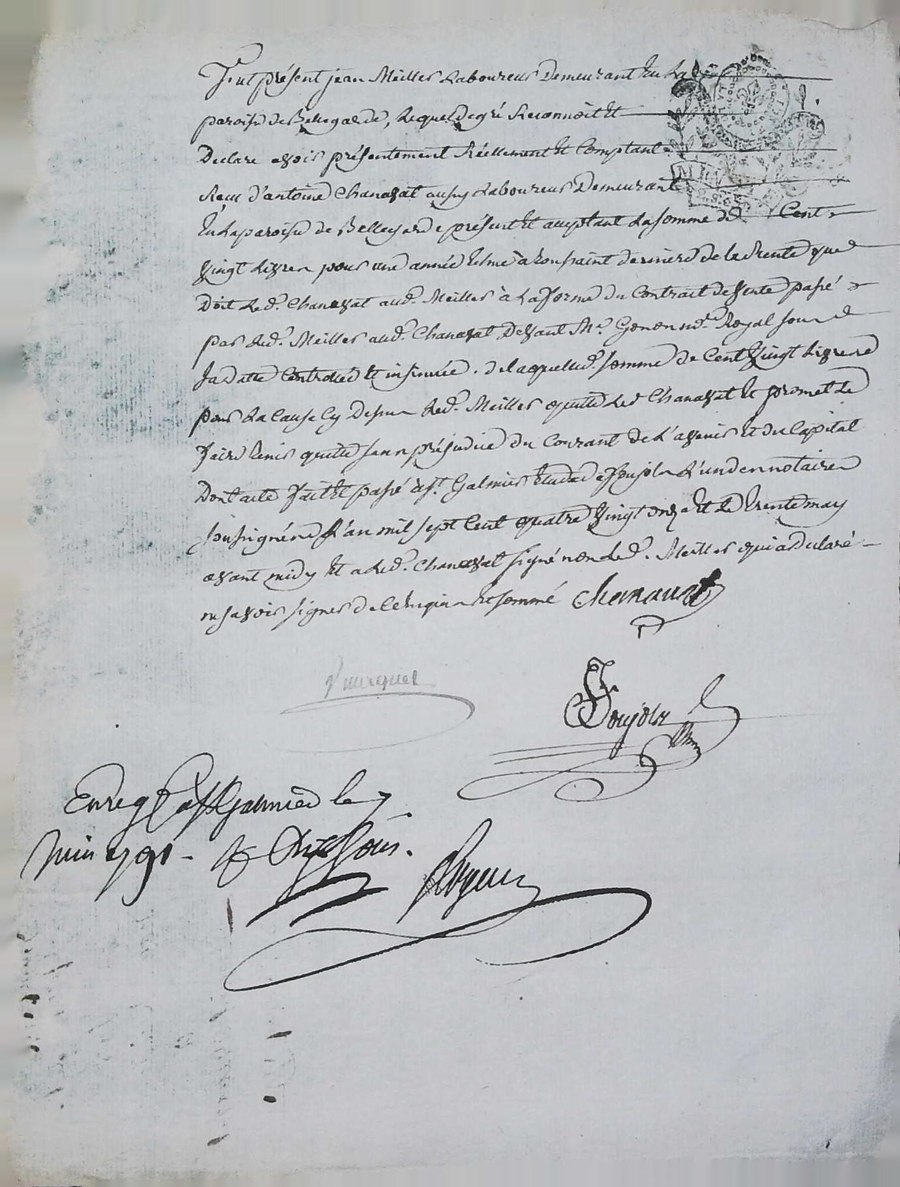 Fut présent jean Meiller Laboureur Demeurant En La
paroisse de Bellegarde, Lequel de gré Reconnoit Et
Declare avoir présentement Réellement Et Comptant
Receu d'antoine Chanavat aussy Laboureur Demeurant
En La paroisse de Bellegarde présent Et acceptant La somme de Cent
Vingt Livres pour une année Echue a toussaint derniere de la Rente que
Doit Led. Chanavat aud. Meiller à La forme du Contrat de vente passé
par Led. Meiller aud. Chanavat Devant Me. Gonon nre. Royal sous
Sa datte Controllé Et insinué. de laquelle d. somme de Cent Vingt Livres
pour La Cause Cy Dessus Led. Meiller quitte Led. Chanavat Et promet Le
faire tenir quitte sans préjudice du Courant de L'avenir Et du Capital
Dont acte fait Et passé à St. Galmier Etude de Poujols L'un des notaires
soussignés L'an mil sept Cent quatre Vingt onze Et Le trente may
avant midy Et a Led. Chanavat signé non Led. Meiller qui a declaré
ne savoir signer de ce Enquis Et sommé Chanavat
Poujols
Enreg à St Galmier le 7
juin 1791 - R Dix Sous.